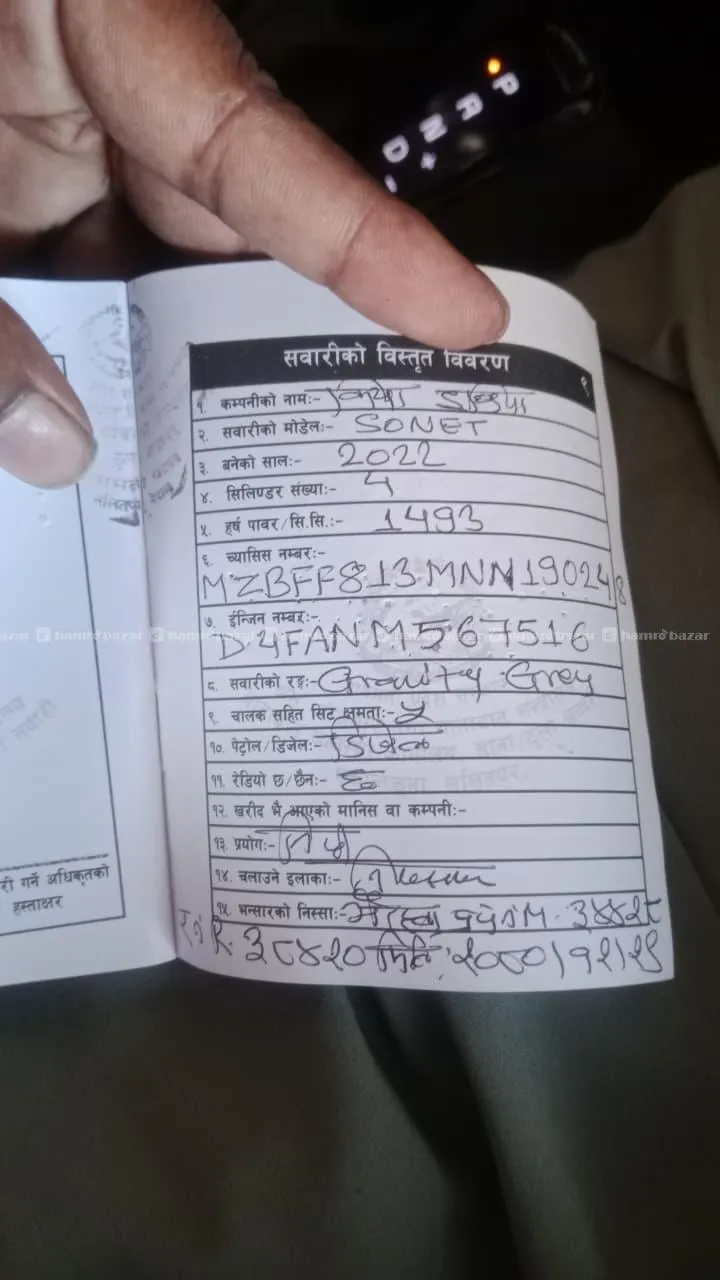 P
R
N
+
D
-
सवारीको विस्तृत विवरण
१
१. कम्पनीको नामः- किया इन्डिया
२. सवारीको मोडेलः- SONET
३. बनेको सालः- 2022
४. सिलिण्डर संख्याः- 4
५. हर्ष पावर/सि.सि.ः- 1493
६. च्यासिस नम्बरः-
MZBFF813MNN190248
७. ईन्जिन नम्बरः-
D4FANM567516
hamrobazar hamrobazar hamrobazar hamrobazar hamrobazar hamrobazar
८. सवारीको रङ्गः- Gravity Grey
९. चालक सहित सिट क्षमताः- ५
१०. पेट्रोल/डिजेलः- डिजेल
११. रेडियो छ/छैनः- छ
१२. खरीद भै आएको मानिस वा कम्पनीः-
१३. प्रयोगः- निजी
१४. चलाउने इलाकाः-
१५. भन्सारको निस्साः- M. ३४४२८
री गर्ने अधिकृतको
हस्ताक्षर
R. ३८४२० मिति